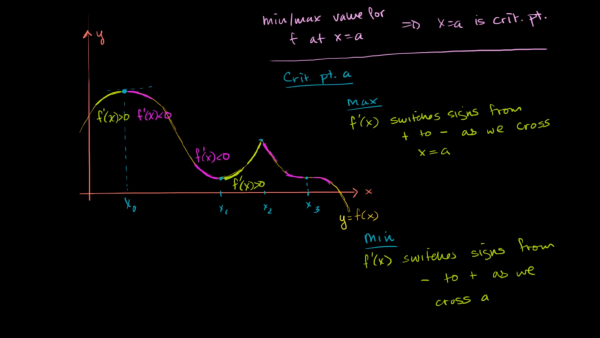 min/max value for
f at x=a ⇒ x=a is crit. pt.
Crit. pt. a
max
f'(x) switches signs from
+ to - as we cross
x=a
y
f'(x)>0 f'(x)<0
f'(x)<0
f'(x)>0
x
x₀ x₁ x₂ x₃
y=f(x)
min
f'(x) switches signs from
- to + as we
cross a